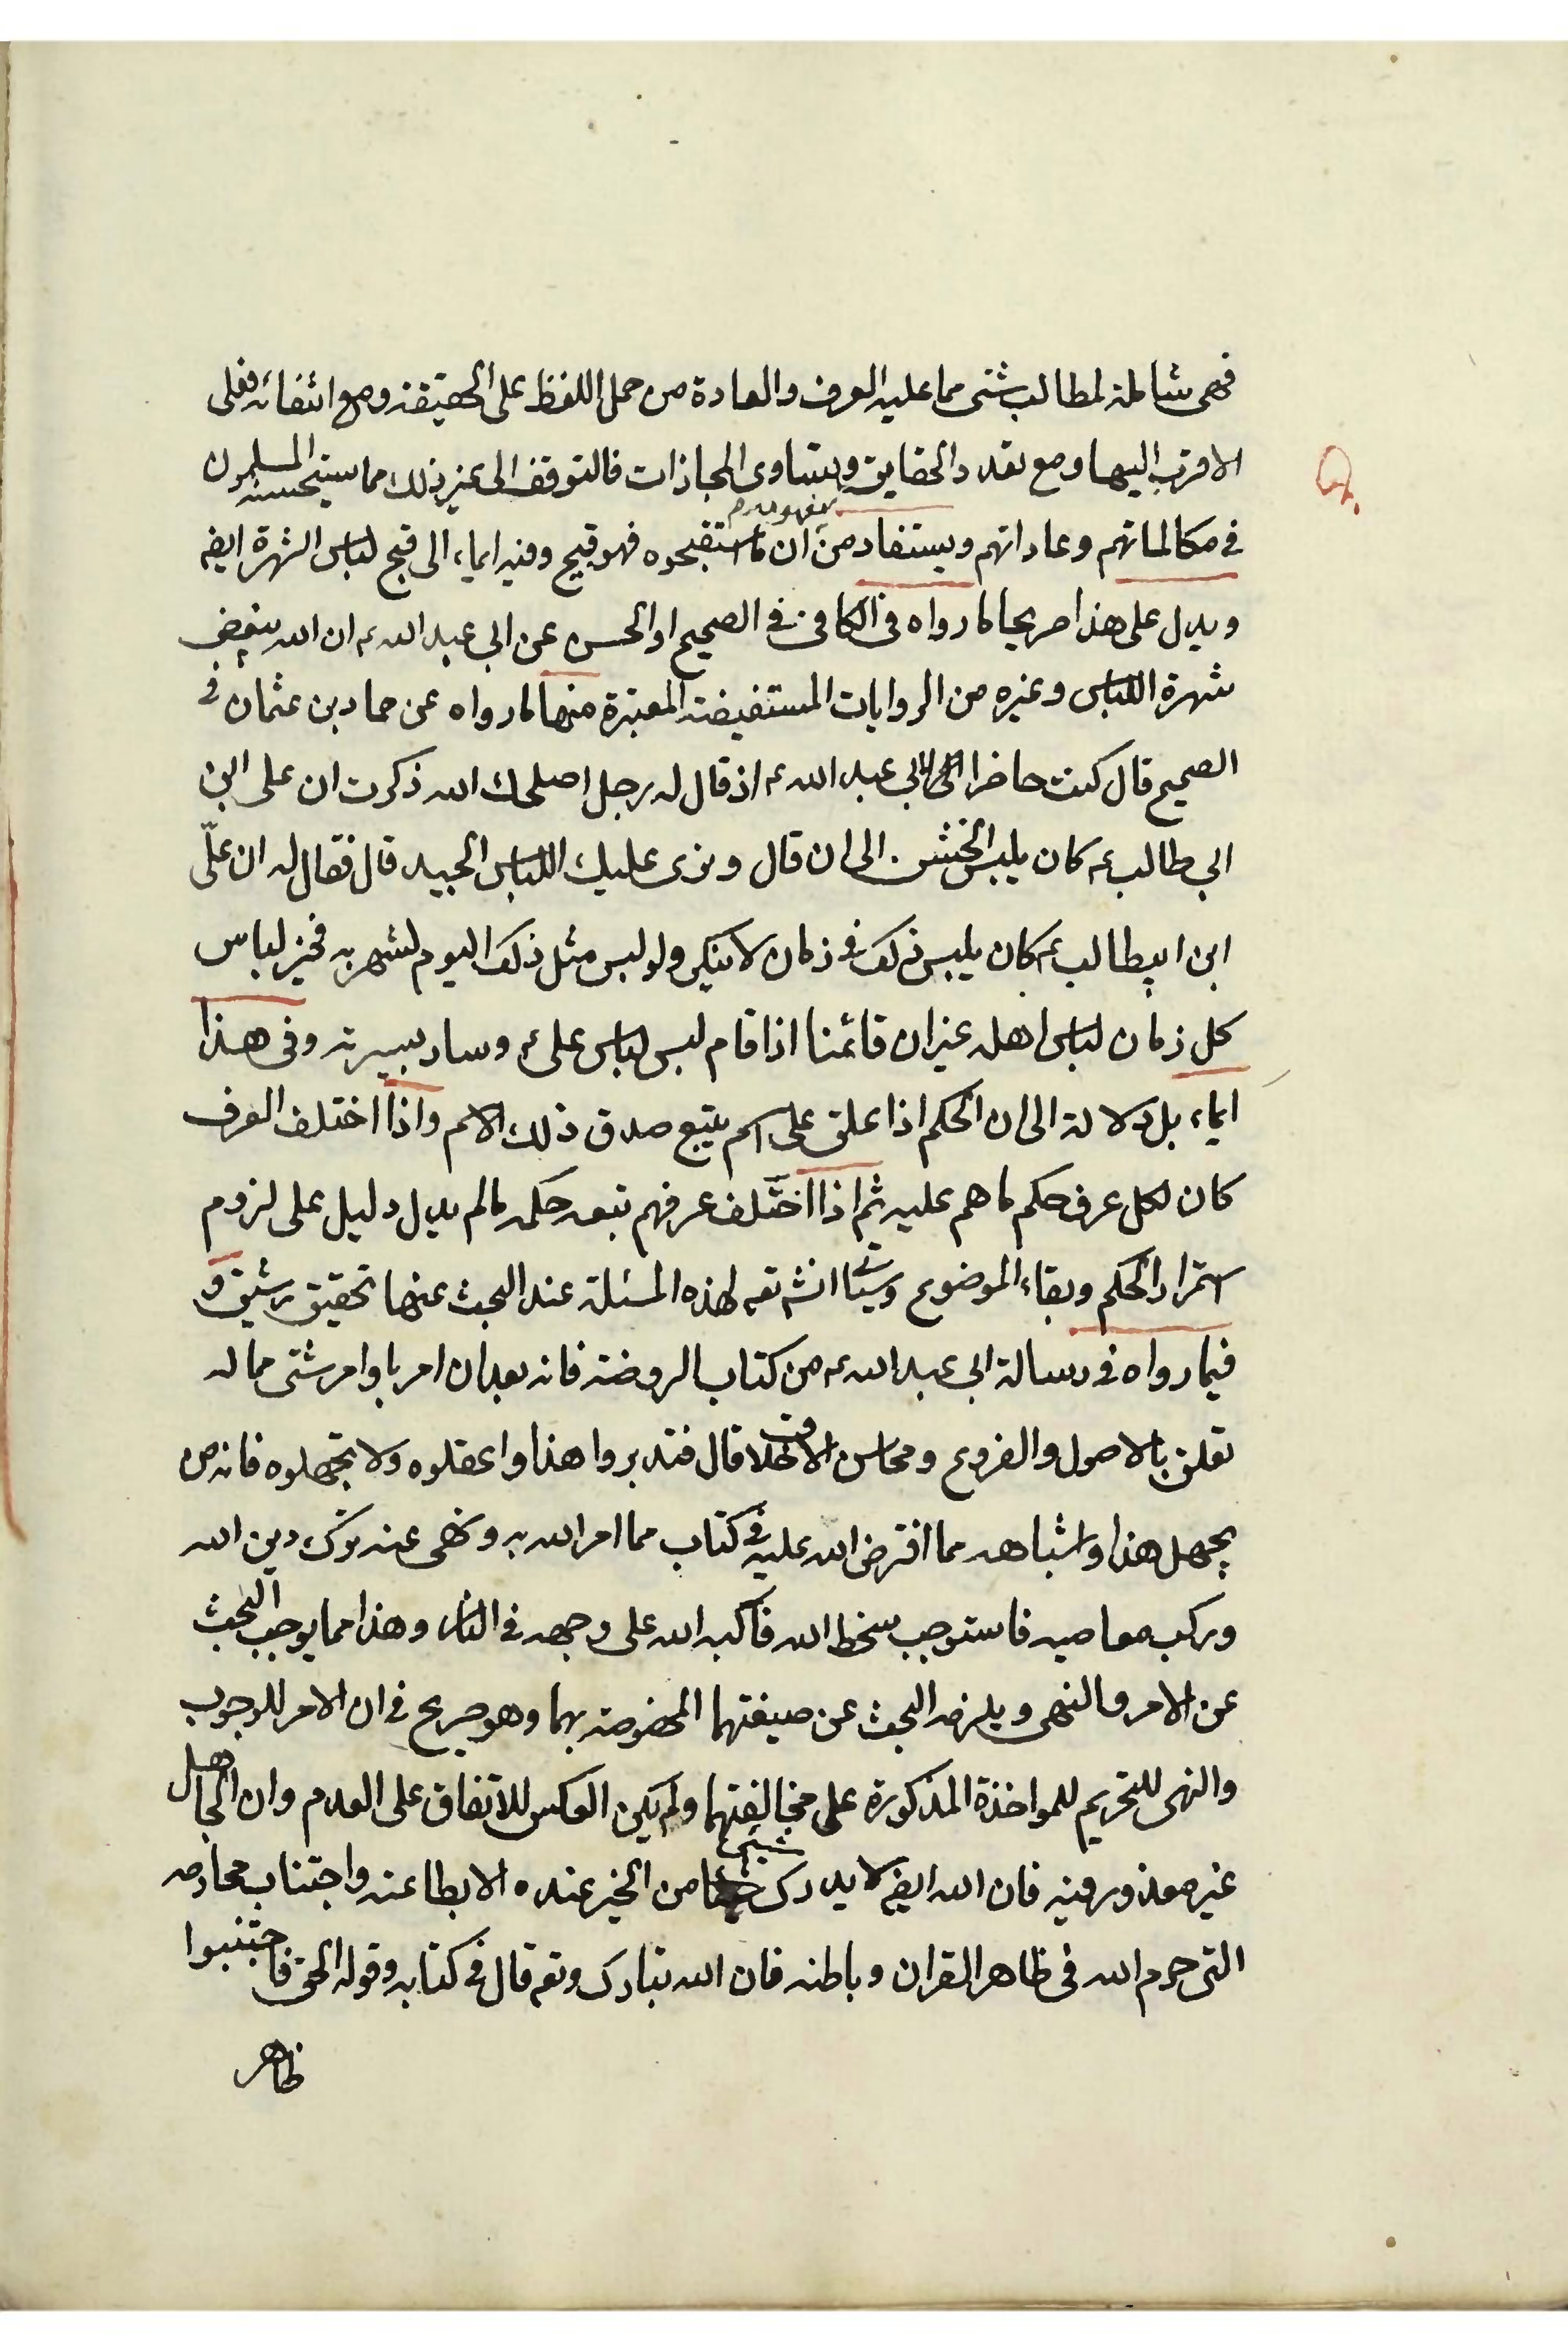 فهى شاملة لمطالب شتى مما عليه العرف والعادة من حمل اللفظ على الحقيقة ومع انتفائه فعلى
الاقرب اليها ومع تعدد الحقايق وتساوى المجازات فالتوقف الى غير ذلك مما يستحسنه المسلمون
فى مكالماتهم وعاداتهم ويستفاد من مفهومه ان ما استقبحوه فهو قبيح وفيه ايماء الى قبح لباس الشهرة ايضا
ويدل على هذا صريحا ما رواه فى الكافى فى الصحيح او الحسن عن ابى عبد الله ع ان الله يبغض
شهرة اللباس وغيره من الروايات المستفيضة المعتبرة منها ما رواه عن حماد بن عثمان فى
الصحيح قال كنت حاضرا لابى عبد الله ع اذ قال له رجل اصلحك الله ذكرت ان على ابن
ابى طالب ع كان يلبس الخشن الى ان قال ونرى عليك اللباس الجيد قال فقال له ان علّى
ابن ابيطالب ع كان يلبس ذلك فى زمان لا ينكر ولو لبس مثل ذلك اليوم لشهر به فخير لباس
كل زمان لباس اهله غير ان قائمنا اذا قام لبس لباس على ع وسار بسيرته وفى هذا
ايماء بل دلالة الى ان الحكم اذا علق على اسم يتبع صدق ذلك الاسم واذا اختلف العرف
كان لكل عرف حكم ما هم عليه ثم اذا اختلف عرفهم تبعه حكمه ما لم يدل دليل على لزوم
استمرار الحكم وبقاء الموضوع وسياتى انش تعه لهذه المسئلة عند البحث عنها تحقيق رشيق و
فيما رواه فى رسالة ابى عبد الله ع من كتاب الروضة فانه بعد ان امر باوامر شتى مما له
تعلق بالاصول والفروع ومحاسن الاخلاق قال فتدبروا هذا واعقلوه ولا تجهلوه فانه من
يجهل هذا واشباهه مما افترض الله عليه فى كتاب مما امر الله به ونهى عنه ترك دين الله
وركب معاصيه فاستوجب سخط الله فاكبه الله على وجهه فى النار وهذا مما يوجب البحث
عن الامر والنهى ويلزمه البحث عن صيغتهما المخصوصة بهما وهو صريح فى ان الامر للوجوب
والنهى للتحريم للمواخذة المذكورة على مخالفتهما ولم يكن العكس للاتفاق على العدم وان الجاهل
غير معذور فيه فان الله ايضا لا يدرك شىء من الخير عنده الا بطاعته واجتناب محارمه
التى حرم الله فى ظاهر القران وباطنه فان الله تبارك وتعه قال فى كتابه وقوله الحق فاجتنبوا
ظاهر